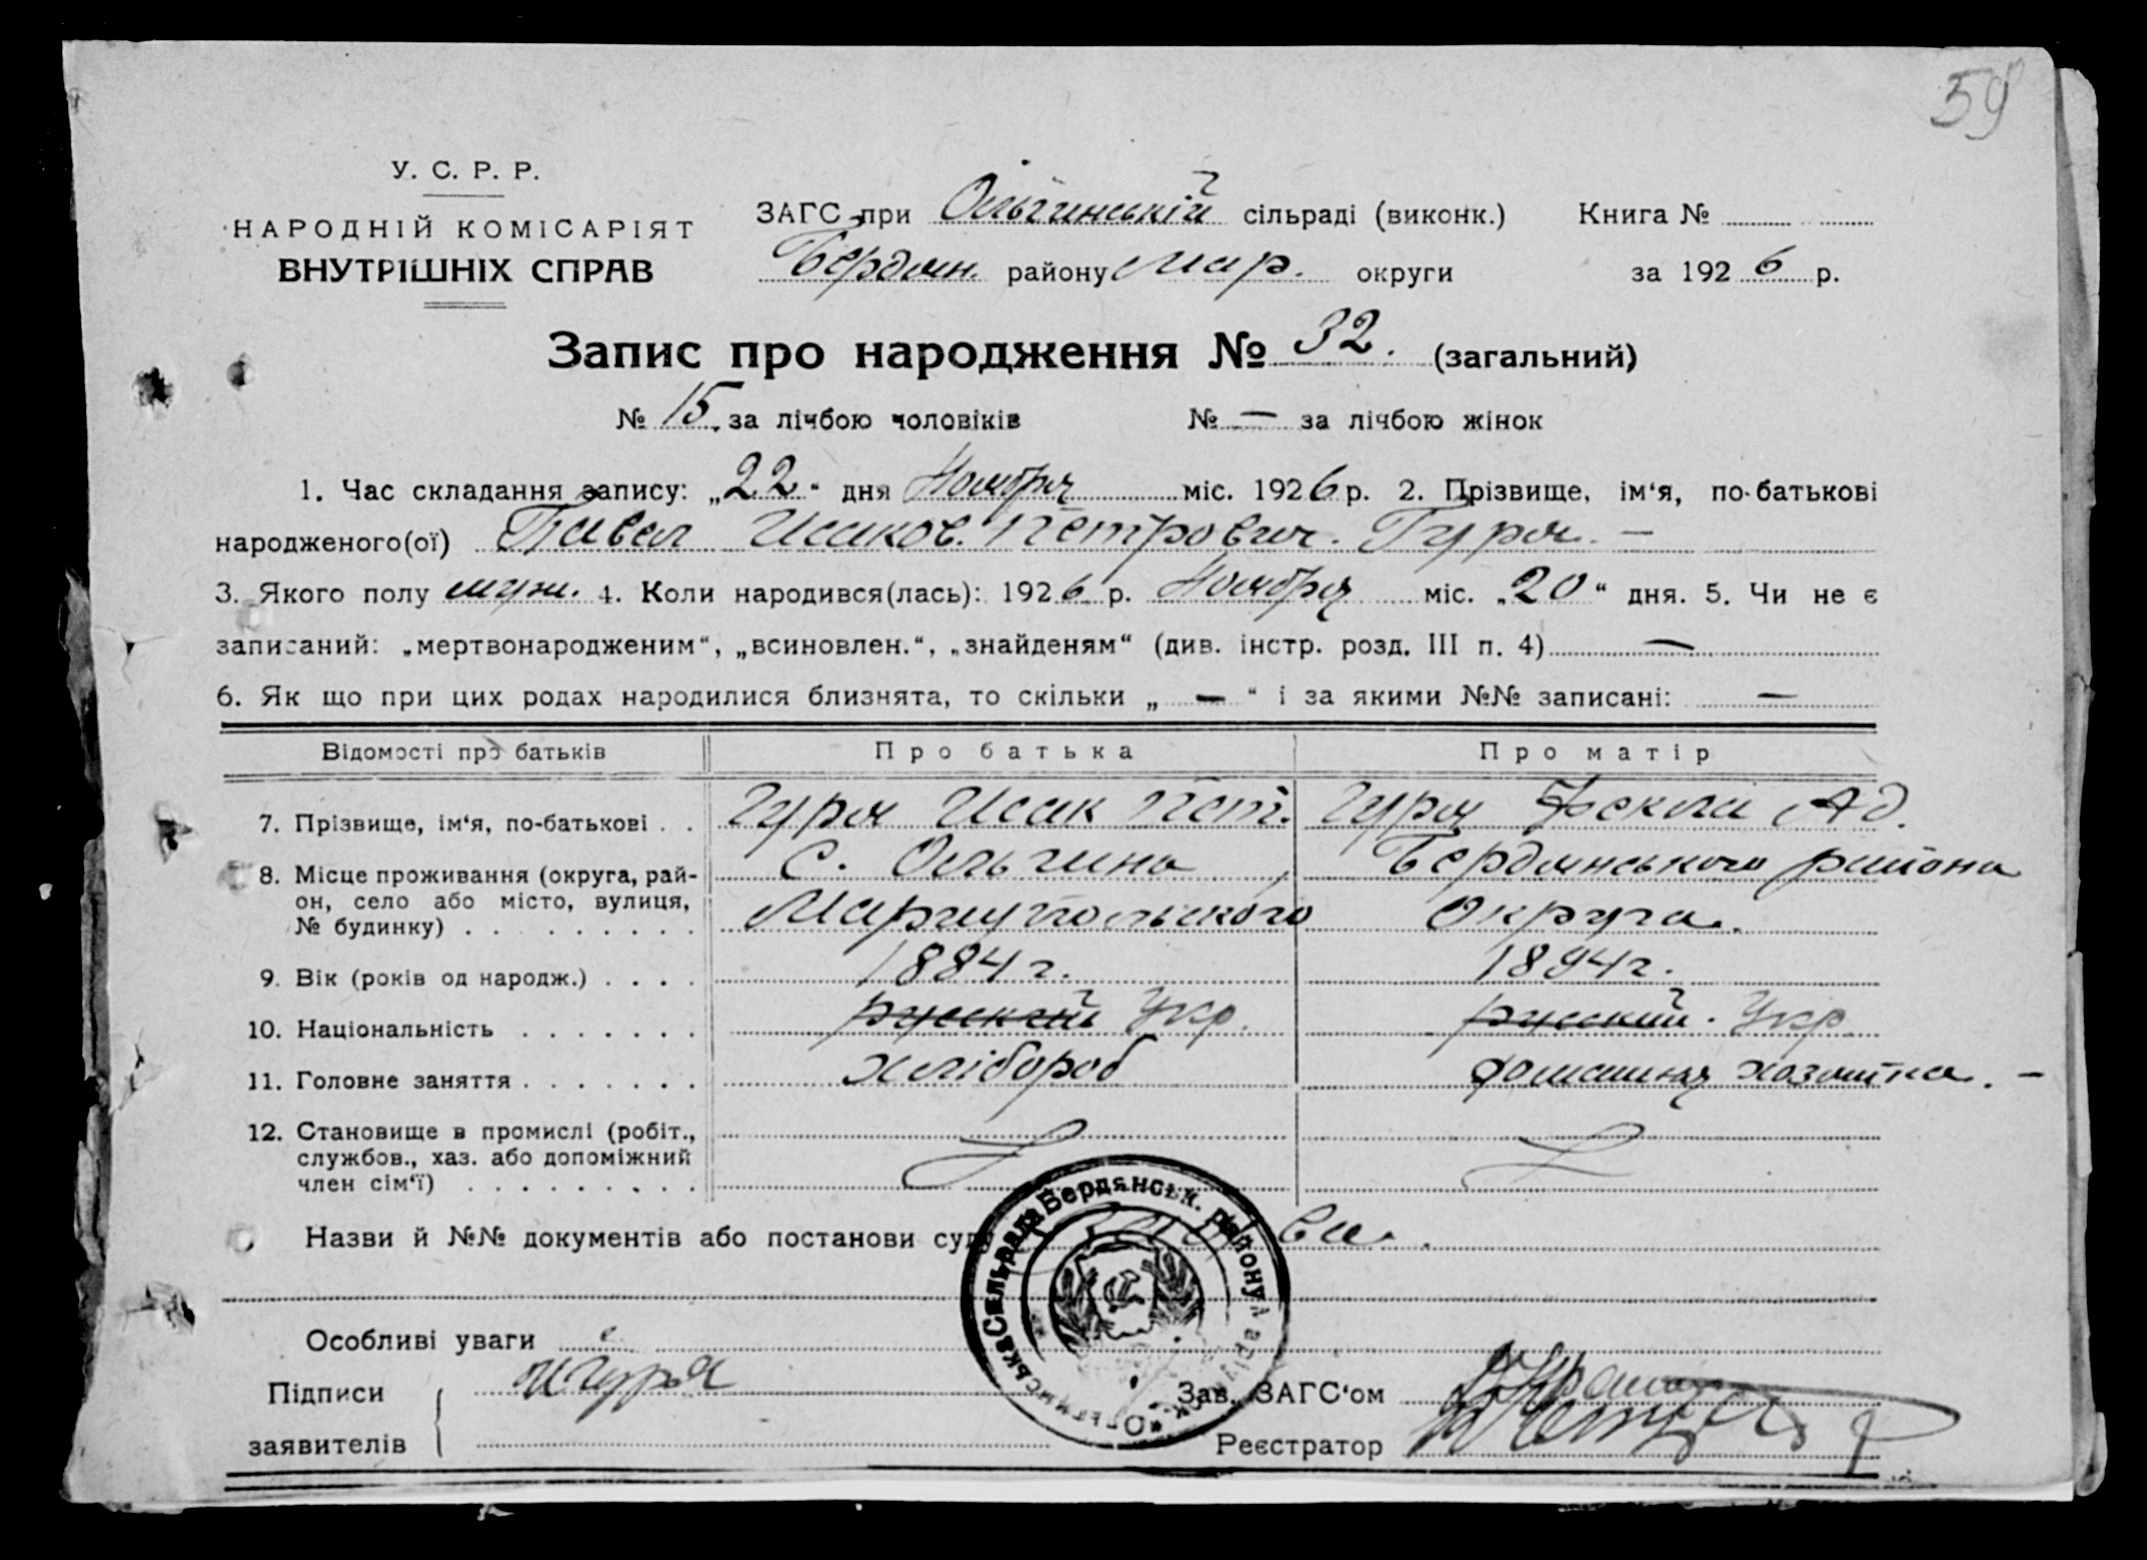 59
У. С. Р. Р.
НАРОДНІЙ КОМІСАРІЯТ
ВНУТРІШНІХ СПРАВ
ЗАГС при Ольгинській сільраді (виконк.) Книга №
Бердян. району Мар. округи за 1926 р.
Запис про народження № 32. (загальний)
№ 15. за лічбою чоловіків № — за лічбою жінок
1. Час складання запису: „22“ дня Ноября міс. 1926 р. 2. Прізвище, ім‘я, по-батькові
народженого(ої) Павел Исаков. Петрович. Гуря. —
3. Якого полу муж. 4. Коли народився(лась): 1926 р. Ноября міс. „20“ дня. 5. Чи не є
записаний: „мертвонародженим“, „всиновлен.“, „знайденям“ (див. інстр. розд. III п. 4) —
6. Як що при цих родах народилися близнята, то скільки „ — “ і за якими №№ записані: —
Відомості про батьків Про батька Про матір
7. Прізвище, ім‘я, по-батькові . . Гуря Исак Пет. Гуря Фекла Ад.
8. Місце проживання (округа, рай- с. Ольгина Бердянського района
он, село або місто, вулиця,
№ будинку) . . . . . . . . . Мариупольского Округа.
9. Вік (років од народж.) . . . . 1884 г. 1894 г.
10. Національність . . . . . . . русский Укр. русский. Укр
11. Головне заняття . . . . . . . хлібороб домашняя хазяйка. —
12. Становище в промислі (робіт.,
службов., хаз. або допоміжний
член сім‘ї) . . . . . . . . .
Назви й №№ документів або постанови суду
Ольгинська Сільрада Бердянськ. району Маріуп. ок.
Особливі уваги
Підписи И Гуря Зав. ЗАГС‘ом
заявителів Реєстратор